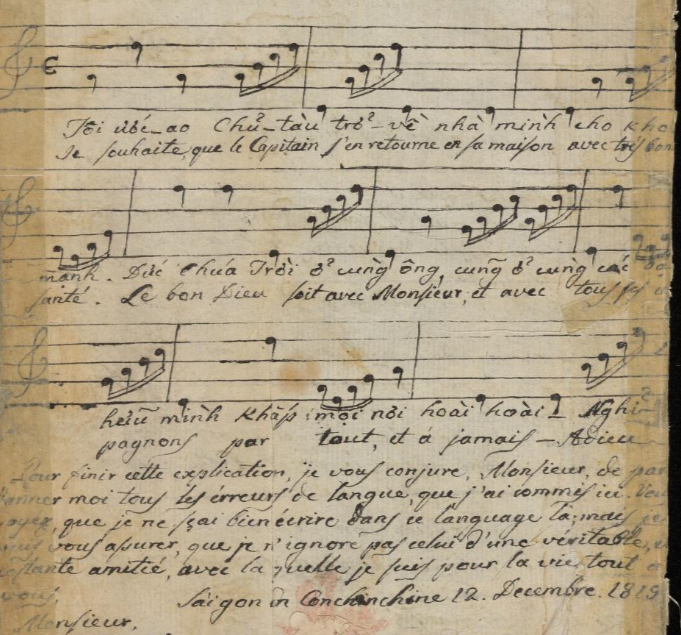 Tôi ước_ao Chủ_tàu trở_về nhà mình cho khỏ
Je souhaite, que le Capitain s'en retourne en sa maison avec tres bon
mạnh. Đức Chúa Trời ở cùng ông, cũng ở cùng các
santé. Le bon Dieu soit avec Monsieur, et avec tous ses
hữu mình khắp mọi nơi hoài hoài_ Nghi
pagnons par tout, et à jamais — Adieu
Pour finir cette explication, je vous conjure, Monsieur, de par
moi tous les érreurs de langue, que j'ai commés ici. Vou
que je ne sçai bien écrire dans ce language là; mais je
vous assurer, que je n'ignore pas celui d'une veritable, e
amitié, avec laquelle je suis pour la vie, tout
vous,
Saigon in Conchinchine 12. Decembre. 1819
Monsieur,